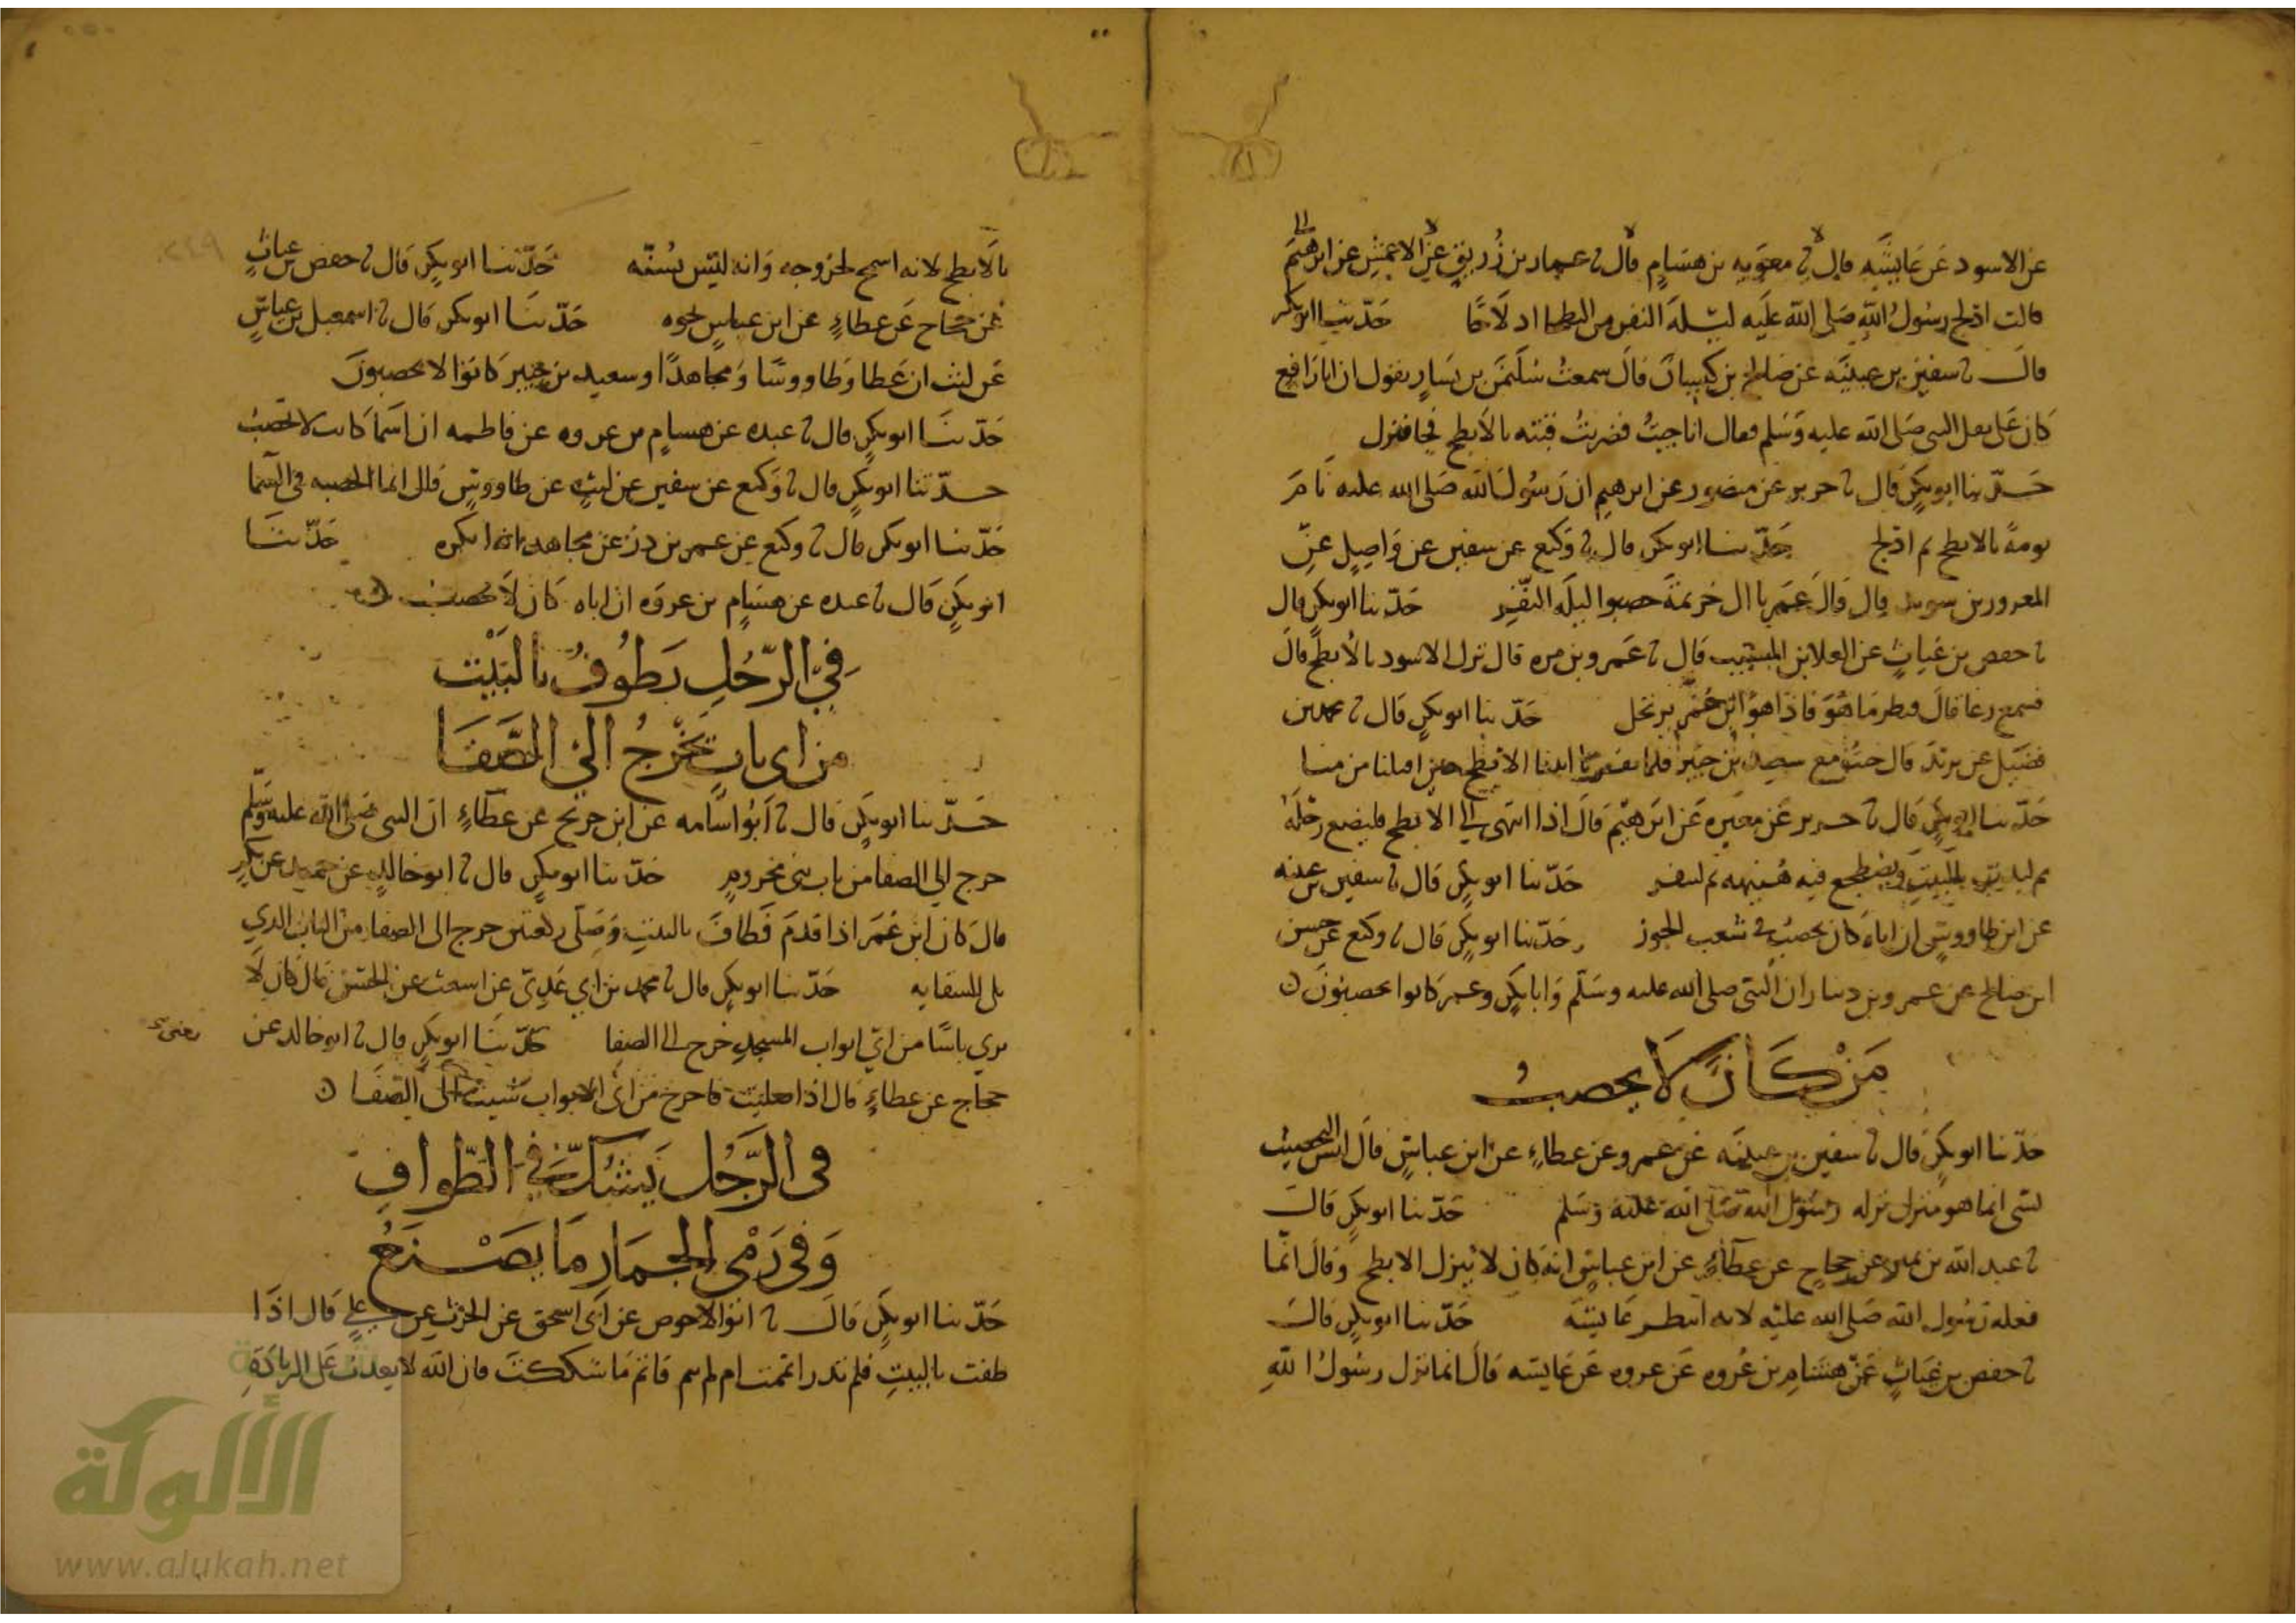 عن الاسود عن عايشه قال ثنا معويه بن هشام قال ثنا عمار بن زريق عن الاعمش عن ابرهيم
قالت ادلج رسول الله صلى الله عليه ليلة النفر من البطحا ادلاجا حدثنا ابو بكر
قال ثنا سفين بن عيينه عن صالح بن كيسان قال سمعت سليمن بن يسار يقول ان ابا رافع
كان على ثقل النبى صلى الله عليه وسلم فقال انا جيت فضربت قبته بالابطح فجا فنزل
حدثنا ابو بكر قال ثنا جرير عن منصور عن ابرهيم ان رسول الله صلى الله عليه نام
نومة بالابطح ثم ادلج حدثنا ابو بكر قال ثنا وكيع عن سفين عن واصل عن
المعرور بن سويد قال قال عمر يا ال خزيمة حصبوا ليلة النفر حدثنا ابو بكر قال
ثنا حفص بن غياث عن العلا بن المسيب قال ثنا عمرو بن مره قال نزل الاسود بالابطح قال
فسمع رغا قال فنظر ما هو فاذا هو ابن عمر يرتحل حدثنا ابو بكر قال ثنا محمد بن
فضيل عن يزيد قال حججت مع سعيد بن جبير فلما نفرنا اتينا الابطح حين اقبلنا من منا
حدثنا ابو بكر قال ثنا جرير عن مغيره عن ابرهيم قال اذا انتهى الى الابطح فليضع رحله
ثم ليزر البيت ويضطجع فيه هنيهه ثم لينفر حدثنا ابو بكر قال ثنا سفين بن عيينه
عن ابن طاووس ان اباه كان يحصب في شعب الجوز حدثنا ابو بكر قال ثنا وكيع عن حسن
ابن صالح عن عمرو بن دينار ان النبى صلى الله عليه وسلم وابا بكر وعمر كانوا يحصبون
من كان لا يحصب
حدثنا ابو بكر قال ثنا سفين بن عيينه عن عمرو عن عطاء عن ابن عباس قال ليس التحصيب
بشى انما هو منزل نزله رسول الله صلى الله عليه وسلم حدثنا ابو بكر قال
ثنا عبد الله بن نمير عن حجاج عن عطاء عن ابن عباس انه كان لا ينزل الابطح وقال انما
فعله رسول الله صلى الله عليه لانه انتظر عايشه حدثنا ابو بكر قال
ثنا حفص بن غياث عن هشام بن عروه عن عروه عن عايشه قال انما نزل رسول الله
بالابطح لانه اسمح لخروجه وانه ليس بسنه حدثنا ابو بكر قال ثنا حفص بن غياث
عن حجاج عن عطاء عن ابن عباس نحوه حدثنا ابو بكر قال ثنا اسمعيل بن عياش
عن ليث ان عطا وطاووسا ومجاهدا وسعيد بن جبير كانوا لا يحصبون
حدثنا ابو بكر قال ثنا عبده عن هشام بن عروه عن فاطمه ان اسما كانت لا تحصب
حدثنا ابو بكر قال ثنا وكيع عن سفين عن ليث عن طاووس قال انما الحصبه فى السما
حدثنا ابو بكر قال ثنا وكيع عن عمر بن ذر عن مجاهد انه انكره حدثنا
ابو بكر قال ثنا عبده عن هشام بن عروه ان اباه كان لا يحصب
في الرجل يطوف بالبيت
من اى باب يخرج الى الصفا
حدثنا ابو بكر قال ثنا ابو اسامه عن ابن جريج عن عطاء ان النبى صلى الله عليه وسلم
خرج الى الصفا من باب بنى مخزوم حدثنا ابو بكر قال ثنا ابو خالد عن حميد عن بكر
قال كان ابن عمر اذا قدم فطاف بالبيت وصلى ركعتين خرج الى الصفا من الباب الذي
يلى السقايه حدثنا ابو بكر قال ثنا محمد بن ابي عدى عن اشعث عن الحسن قال كان لا
يرى باسا من اي ابواب المسجد خرج الى الصفا حدثنا ابو بكر قال ثنا ابو خالد عن
يعنى
حجاج عن عطاء قال اذا صليت فاخرج من اى الابواب شيت الى الصفا
فى الرجل يشك في الطواف
وفى رمى الجمار ما يصنع
حدثنا ابو بكر قال ثنا ابو الاحوص عن ابى اسحق عن الحرث عن علي قال اذا
طفت بالبيت فلم تدر اتممت ام لم تتم فاتم ما شككت فان الله لا يعذب على الزيادة
الألوكة
www.alukah.net